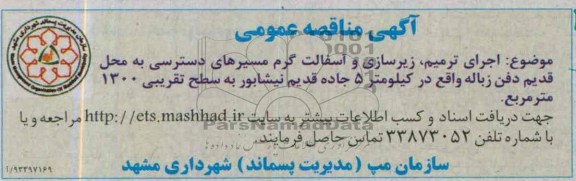 آگهی مناقصه عمومی
موضوع: اجرای ترمیم، زیرسازی و آسفالت گرم مسیرهای دسترسی به محل
قدیم دفن زباله واقع در کیلومتر ۵ جاده قدیم نیشابور به سطح تقریبی ۱۳۰۰
مترمربع.
جهت دریافت اسناد و کسب اطلاعات بیشتر به سایت http://ets.mashhad.ir مراجعه و یا
با شماره تلفن ۳۳۸۷۳۰۵۲ تماس حاصل فرمایند.
سازمان مپ (مدیریت پسماند) شهرداری مشهد
۱/۹۳۳۹۷۱۶۹
سازمان مدیریت پسماند شهرداری مشهد
ParsNamadData